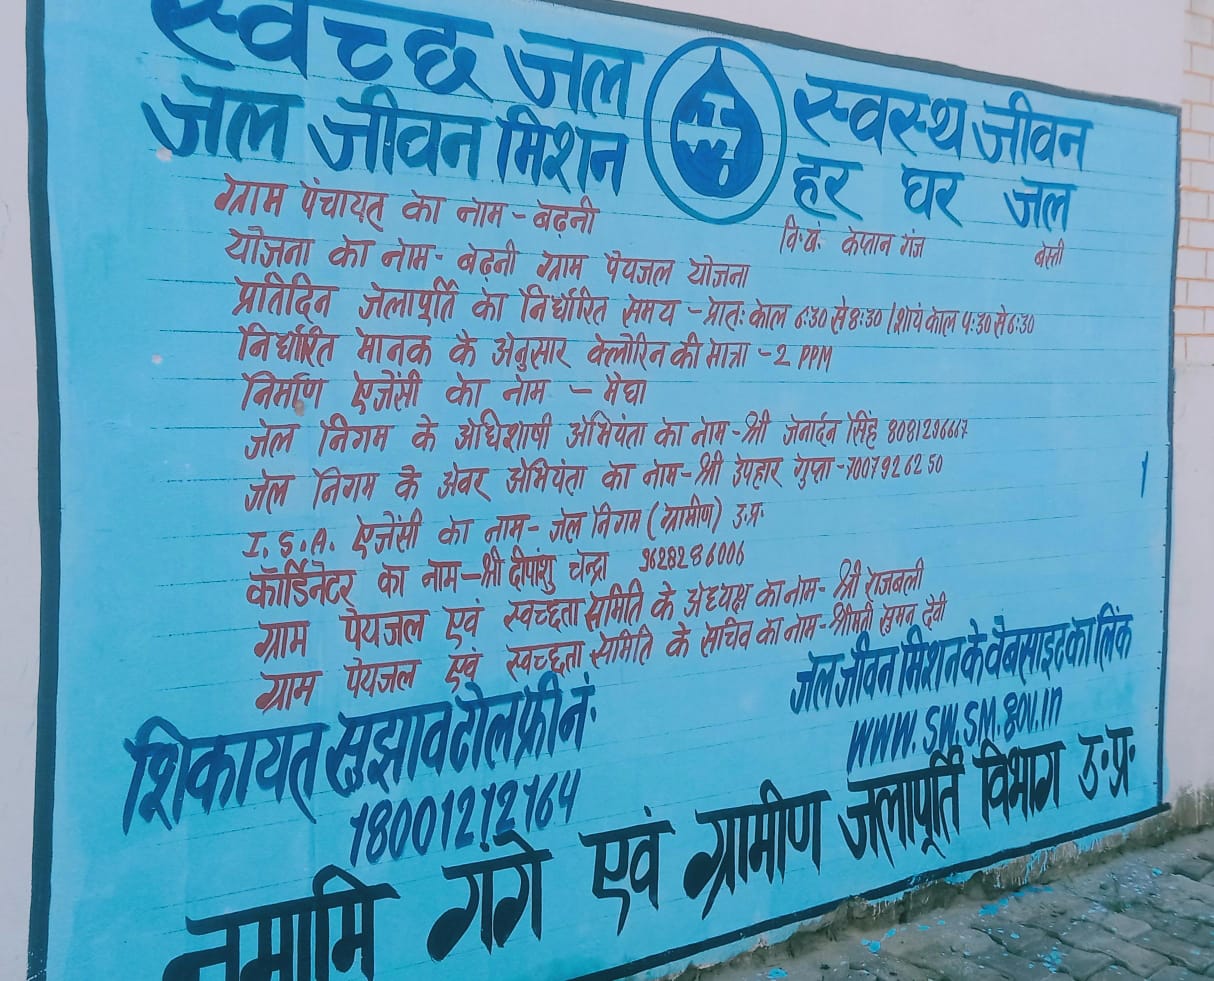 स्वच्छ जल स्वस्थ जीवन
जल जीवन मिशन हर घर जल
ग्राम पंचायत का नाम - बढ़नी वि.खं. केप्तान गंज बस्ती
योजना का नाम - बढ़नी ग्राम पेयजल योजना
प्रतिदिन जलापूर्ति का निर्धारित समय - प्रात: काल 6:30 से 8:30 / शायं काल 4:30 से 6:30
निर्धारित मानक के अनुसार क्लोरिन की मात्रा - 2 PPM
निर्माण ऐजेंसी का नाम - मेघा
जल निगम के अधिशाषी अभियंता का नाम - श्री जनार्दन सिंह 8081296667
जल निगम के अवर अभियंता का नाम - श्री उपहार गुप्ता - 7007926250
I.S.A. ऐजेंसी का नाम - जल निगम (ग्रामीण) उ.प्र.
कॉर्डिनेटर का नाम - श्री दीपांशु चन्द्रा 9628286006
ग्राम पेयजल एवं स्वच्छता समिति के अध्यक्ष का नाम - श्री राजबली
ग्राम पेयजल एवं स्वच्छता समिति के सचिव का नाम - श्रीमती सुमन देवी
जल जीवन मिशन के वेबसाइट का लिंक
www.sw.sm.gov.in
शिकायत सुझाव टोल फ्री नं.
18001212164
नमामि गंगे एवं ग्रामीण जलापूर्ति विभाग उ.प्र.